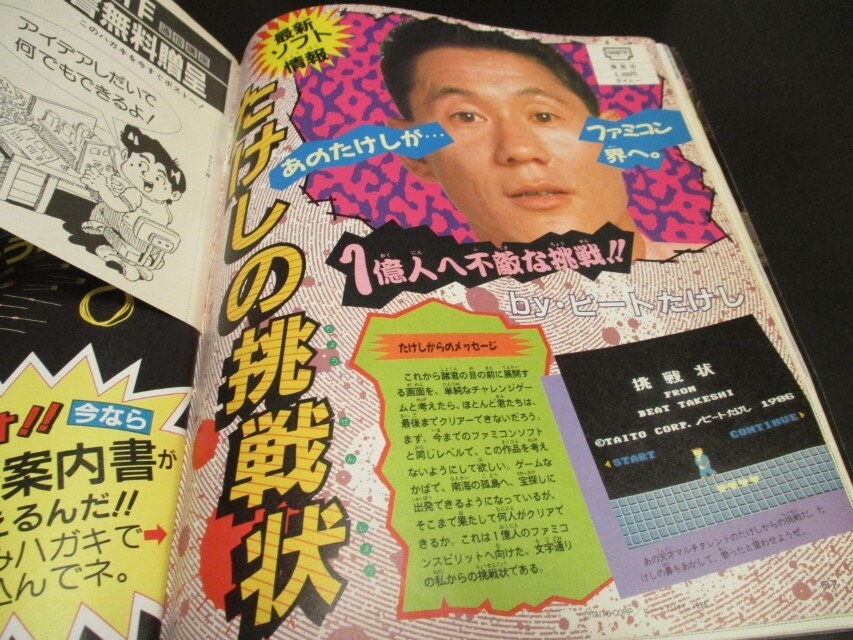 書無料贈呈
このハガキを今すぐポストへ
アイデアしだいで
何でもできるよ!
今なら
案内書が
るんだ!!
ハガキで
込んでネ。
最新
ソフト
情報
たけしの挑戦状
あのたけしが…
ファミコン
界へ。
1億人へ不敵な挑戦!!
by・ビートたけし
たけしからのメッセージ
これから諸君の目の前に展開す
る画面を、単純なチャレンジゲー
ムと考えたら、ほとんど君たちは、
最後までクリアーできないだろう。
まず、今までのファミコンソフト
と同じレベルで、この作品を考え
ないようにして欲しい。ゲームな
かばで、南海の孤島へ、宝探しに
出発できるようになっているが、
そこまで果たして何人がクリアで
きるか。これは1億人のファミコ
ンスピリットへ向けた、文字通り
の私からの挑戦状である。
挑戦状
FROM
BEAT TAKESHI
©TAITO CORP./ビートたけし 1986
START
CONTINUE
あの天才マルチタレントのたけしからの挑戦だ。た
けしの鼻をあかして、参ったと言わせようぜ。
57
©TAITO CORP.